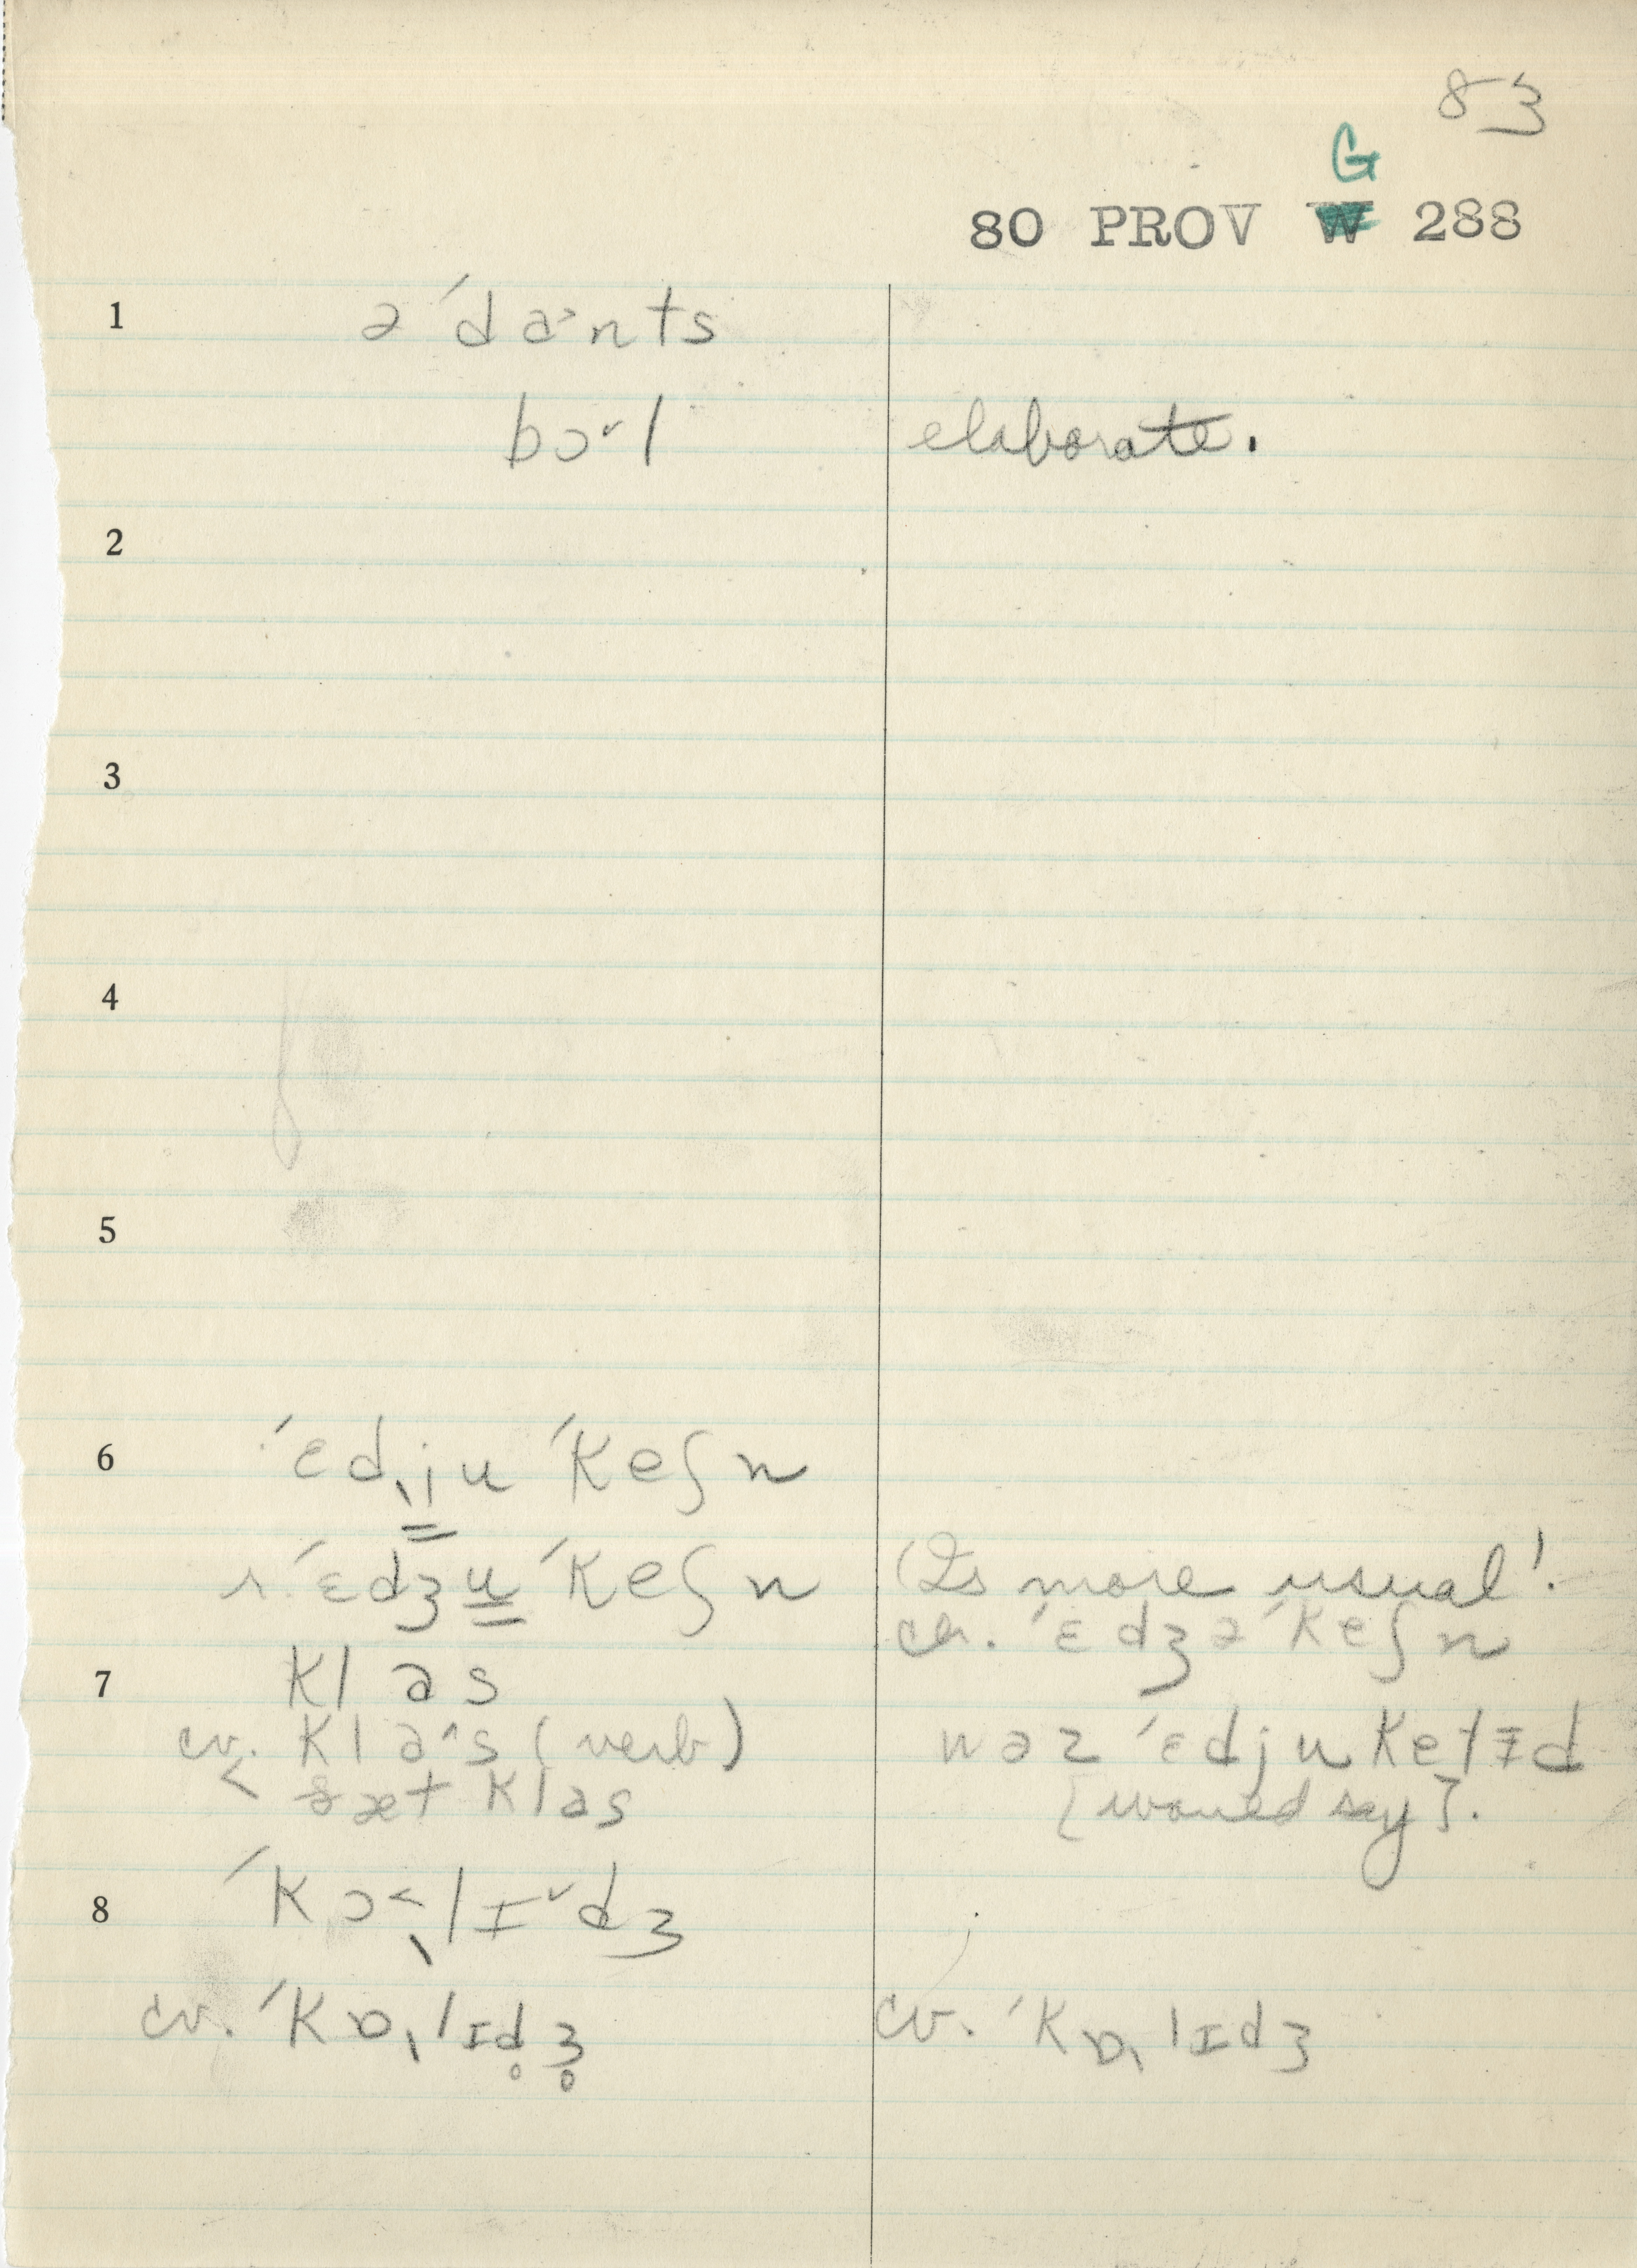 83
G
80 PROV W 288
1 ə ˈd a˃ n t s
b ɔ˅ l elaborate.
2
3
4
5
6 ˈɛd̖ju ˈkeʃn
r. ˈɛdʒu ˈkeʃn (Is more usual!.
cr. ˈɛdʒə ˈkeʃn
7 kl a s
cv. kl a^s (verb) wəz ˈɛdjuketɪd
< sæt klas [would say].
8 ˈkɔ˂̖lɪ˅dʒ
cv. ˈkɒ̖lɪd̥ʒ̥ cv. ˈkɒ̖lɪdʒ